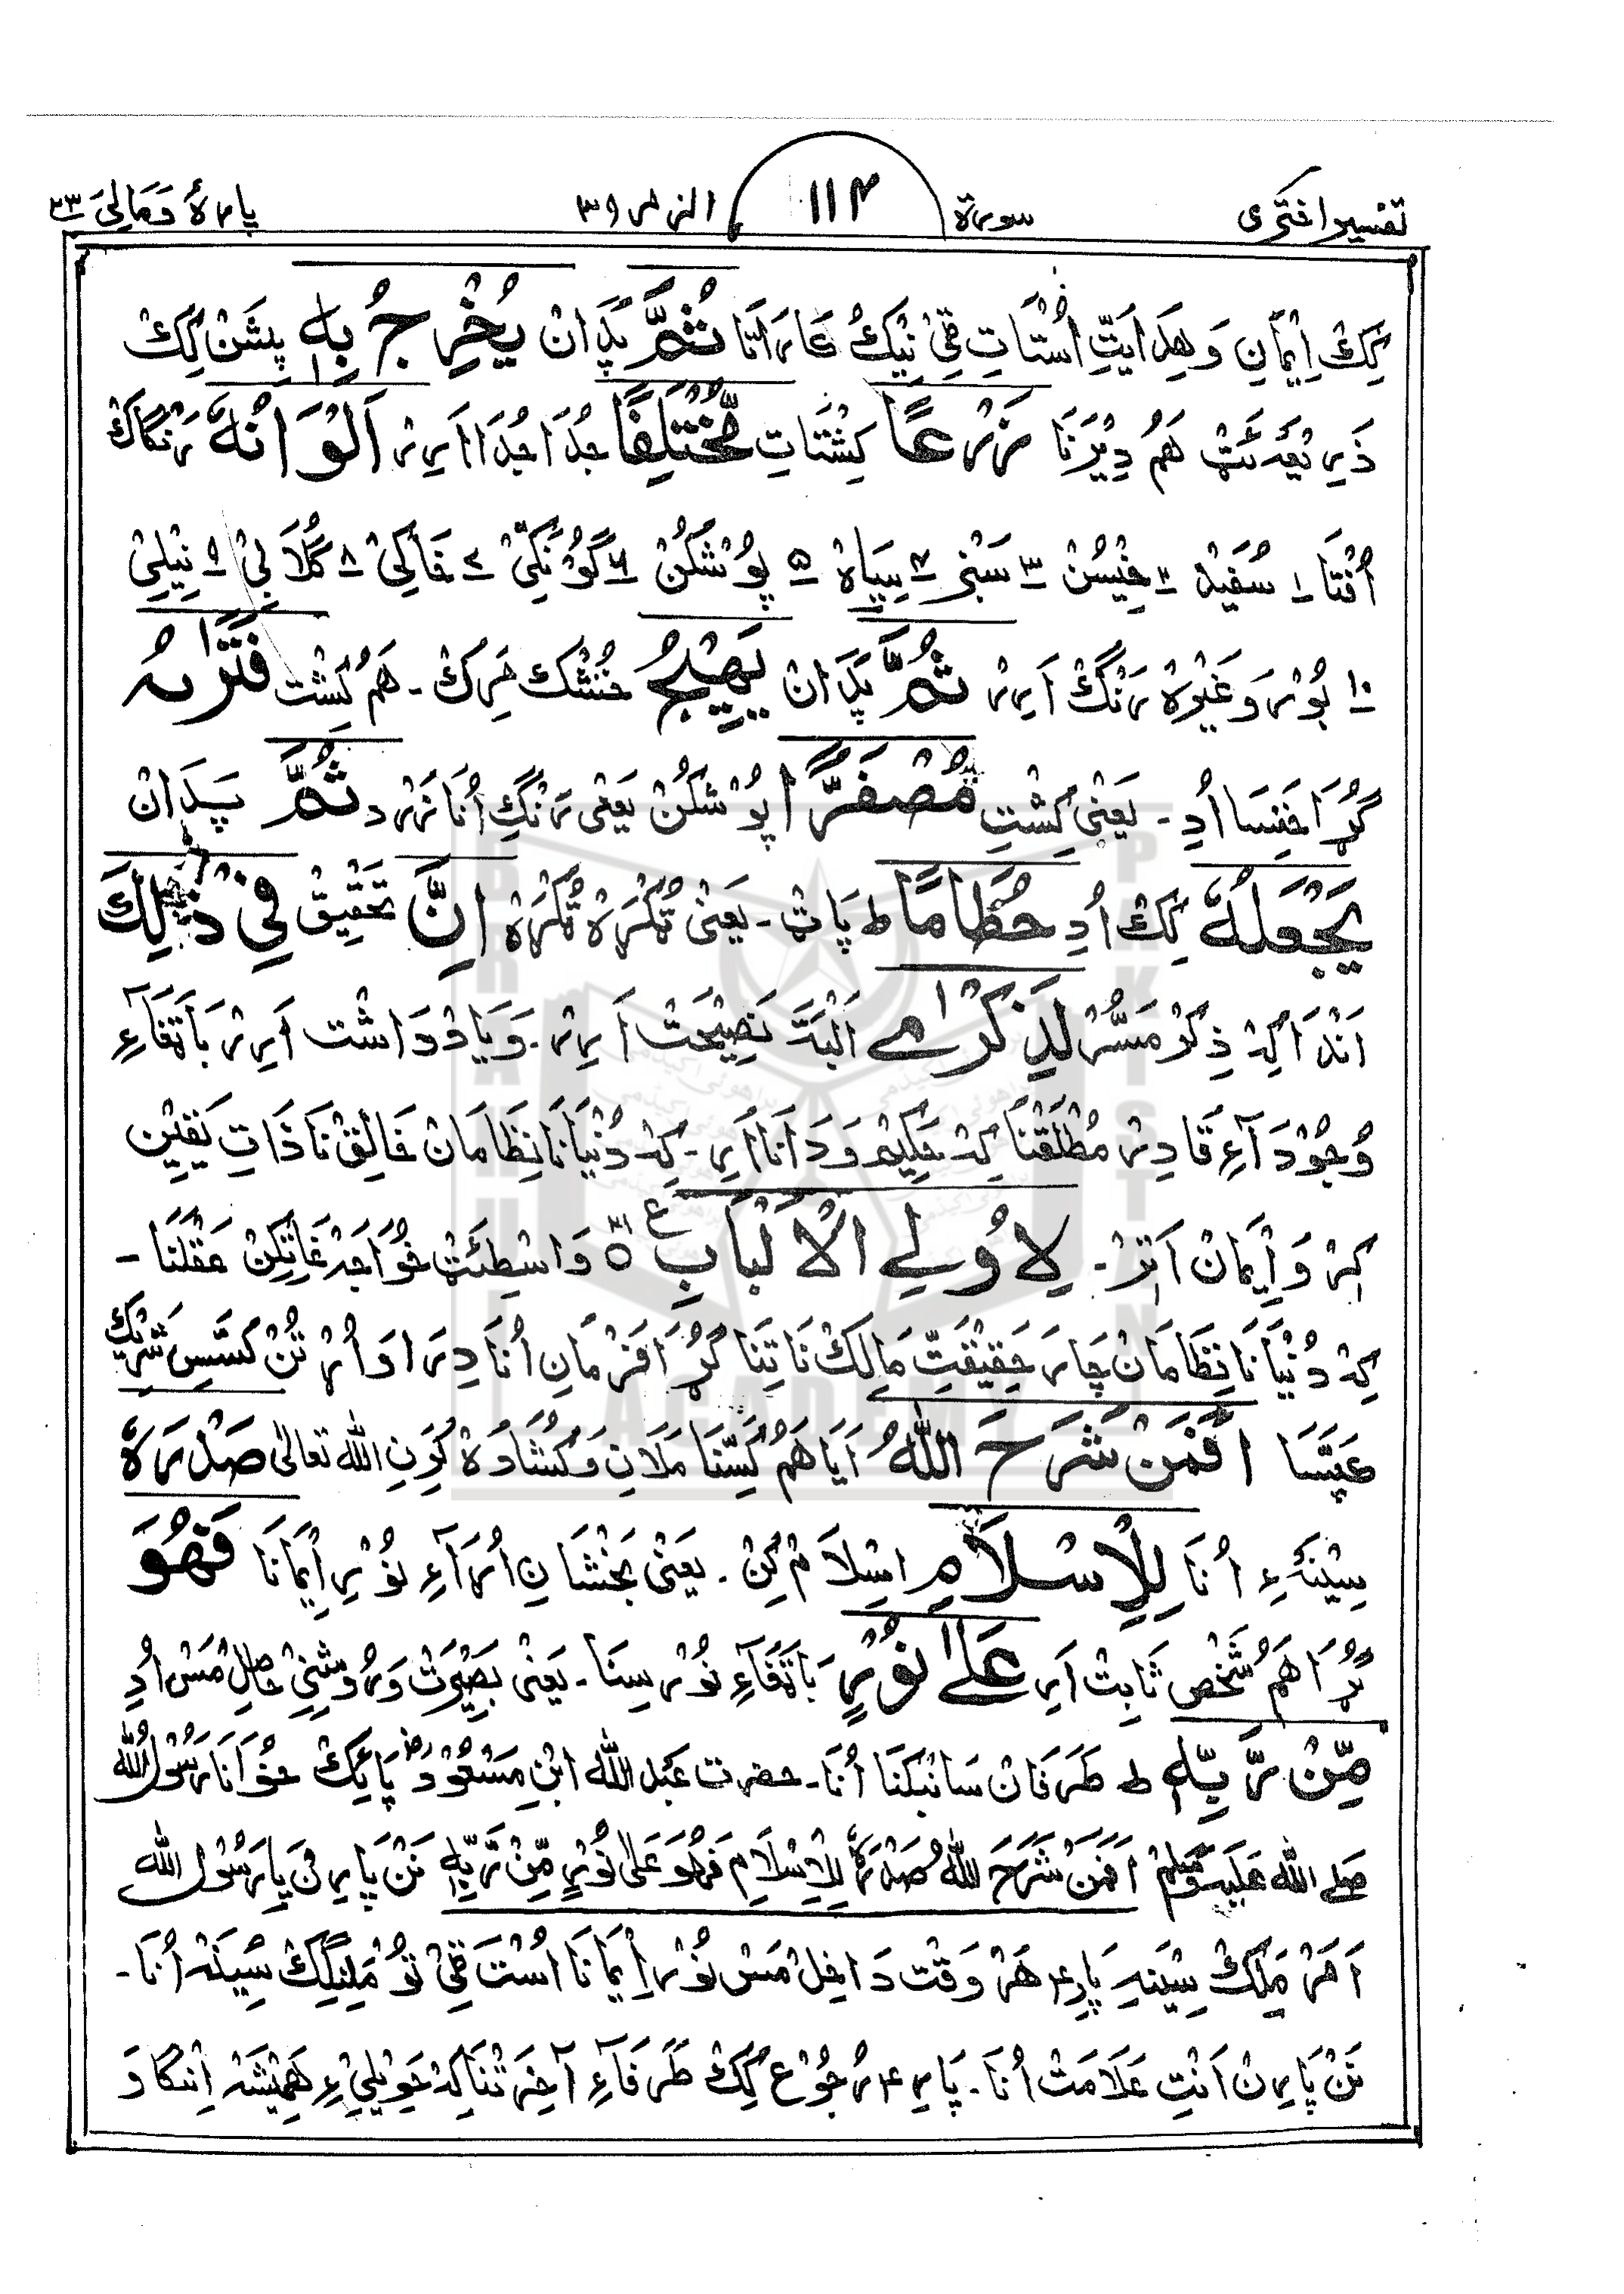 تفسير اختری سورة ١١٤ الزمر ٣٩ پارۀ وَمَالِیَ ٢٣
کِکْ اِیْمَانِ وَهِدَایَتِ اُسْتَاتِ قِیْ نِیْکُ کَارَاتَا ثُمَّ پَدَانْ یُخْرِجُ بِهٖ پِشَنْ کِکْ
ذَرِیْعَہ ئَٹْ ہَمُ دِیْرَنَا زَرْعًا کِشْتَاتِ مُّخْتَلِفًا جُدَا جُدَا اَرِیْر اَلْوَانُهٗ رَنْگَاکْ
اُفْتَا ١ سُفَیْد ٢ خِیْسُنْ ٣ سَبْز ٤ سِیَاهْ ٥ پُوْشْکُنْ ٦ گُوْنَکِیْ ٧ خَاکِیْ ٨ گُلَابِیْ ٩ نِیْلِیْ
١٠ بُوْر وَغَیْرَہْ رَنْگْ اَرِیْر ثُمَّ پَدَانْ یَهِیْجُ خُشْک مَرِکْ ۔ ہَمُ کِشْت فَتَرٰىهُ
گُڑَا خَنِسَا اُدِ ۔ یَعْنِیْ کِشْتِ مُصْفَرًّا پُوْشْکُنْ یَعْنِی رَنْگِ اُنَا زَرْد ثُمَّ پَدَانْ
یَجْعَلُهٗ کِکْ اُدِ حُطَامًا ط پَاش ۔ یَعْنِیْ ٹُکْرَہْ ٹُکْرَہْ اِنَّ تَحْقِیْقْ فِیْ ذٰلِکَ
اَنْدَاکِہْ ذِکْر مَسُّرْ لَذِکْرٰی اَلْبَتَّہ نَصِیْحَتْ اَرِیْر ۔ وَیَادْدَاشْت اَرِیْر بَاتْفَاۤءِ
وُجُوْدَاۤءِ قَادِرْ مُطْلَقْنَا کِہْ حَکِیْم وَدَانَا اَرِ ۔ کِہْ دُنْیَانَا نِظَامَانْ خَالِقْ نَا ذَاتِ یَقِیْن
کِرْ وَ اِیْمَانْ اَتِرْ ۔ لِاُولِی الْاَلْبَابِ ع وَاسْطِئَتْ خُوَاجَہْ غَاتِکِنْ عَقْلْنَا ۔
کِہْ دُنْیَانَا نِظَامَانْ چَارَ حَقِیْقَتِّ مَالِکْ نَا تِنَا گُڑَا فَرْمَانِ اُنَا دِرَا وَاُرْ تُنْ کَسَّسِ شَرِیْکْ
عَپَّسَا اَفَمَنْ شَرَحَ اللّٰهُ اَیَا ہَمُ کَسَّنَا مَلَانِ وَکُشَادَہْ کَرَنِ اللہ تعالیٰ صَدْرَهٗ
سِیْنَہْ ءِ اُنَا لِلْاِسْلَامِ اِسْلَامْ کِنْ ۔ یَعْنِیْ بَخْشَانِ اُرَاۤءِ نُوْرِ اِیْمَانَا فَهُوَ
گُڑَا ہَمُ شَخْص ثَابِتْ اَرِ عَلٰی نُوْرٍ بَاتْفَاۤءِ نُوْر سِنَا ۔ یَعْنِیْ بَصِیْرَتْ وَرُوشَنِیْ حَاصِلْ مَس اُدِ
مِّنْ رَّبِّهٖ ط طَرَفَانْ سَائِبْکَنَا اُنَا ۔ حضرت عَبْدُ اللہ ابْنِ مَسْعُوْدؓ پَائِکْ خُوَانَا رَسُوْلُ اللہ
صَلَّی اللہ عَلَیْہِ وَسَلَّمْ اَفَمَنْ شَرَحَ اللّٰهُ صَدْرَهٗ لِلْاِسْلَامِ فَهُوَ عَلٰی نُوْرٍ مِّنْ رَّبِّهٖ نَنْ پَارِیْنْ یَارَسُوْل اللہ
اَمَرْ مَلِکْ سِیْنَہِ پَارِءِ ہَرْ وَقْت دَاخِلْ مَسْ نُوْرِ اِیْمَانَا اُسْت قِیْ تُوْ مَلِیْکْ سِیْنَہْ اُنَا ۔
نَنْ پَارِنْ اَنْتِ عَلَامَتْ اُنَا ۔ پَارِءِ رُجُوْع کِکْ طَرَفَاۤءِ آخِرَتْنَا کِہْ حَوِیْلِیْ ءِ ہَمِیْشَہْ اِنِنْگَا وَ
PAKISTAN
ACADEMY